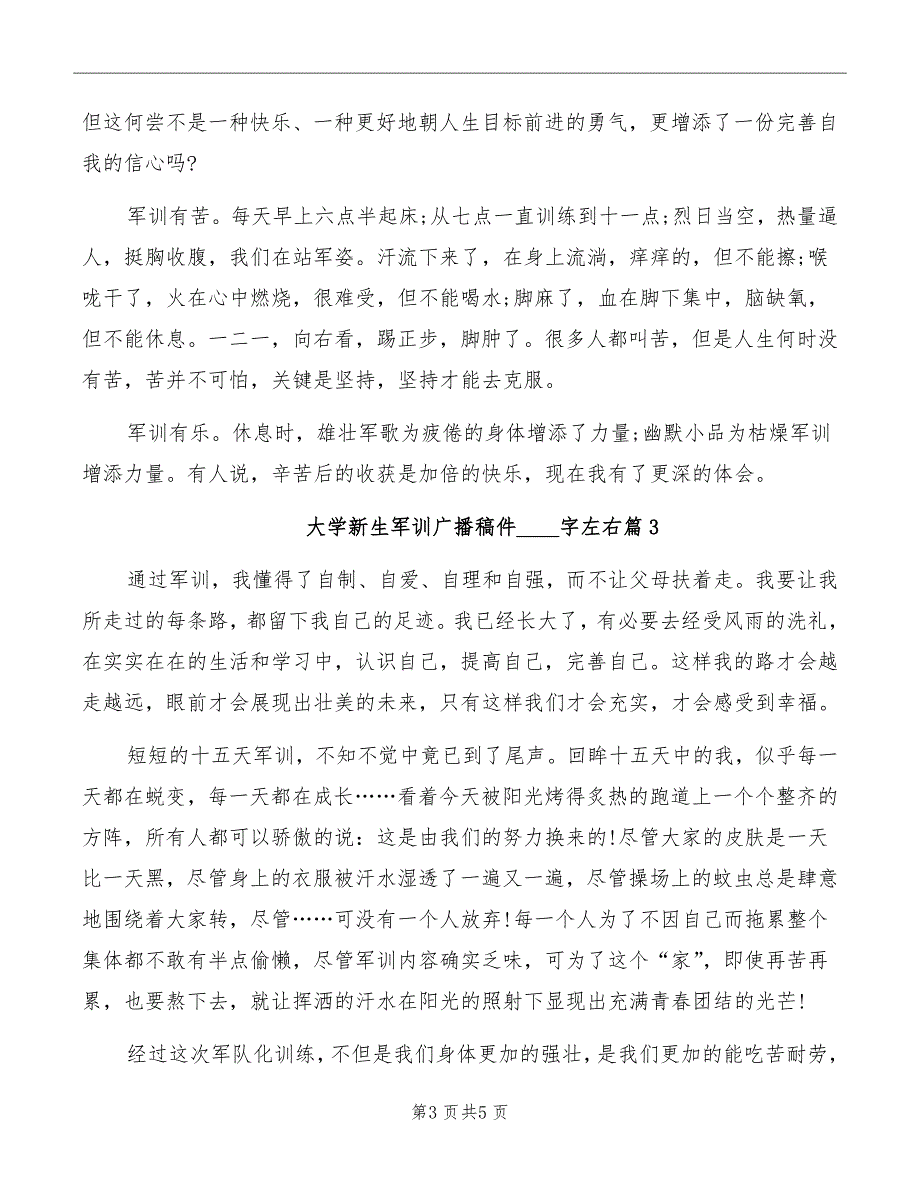 但这何尝不是一种快乐、一种更好地朝人生目标前进的勇气，更增添了一份完善自
我的信心吗?
军训有苦。每天早上六点半起床;从七点一直训练到十一点;烈日当空，热量逼
人，挺胸收腹，我们在站军姿。汗流下来了，在身上流淌，痒痒的，但不能擦;喉
咙干了，火在心中燃烧，很难受，但不能喝水;脚麻了，血在脚下集中，脑缺氧，
但不能休息。一二一，向右看，踢正步，脚肿了。很多人都叫苦，但是人生何时没
有苦，苦并不可怕，关键是坚持，坚持才能去克服。
军训有乐。休息时，雄壮军歌为疲倦的身体增添了力量;幽默小品为枯燥军训
增添力量。有人说，辛苦后的收获是加倍的快乐，现在我有了更深的体会。
大学新生军训广播稿件____字左右篇 3
通过军训，我懂得了自制、自爱、自理和自强，而不让父母扶着走。我要让我
所走过的每条路，都留下我自己的足迹。我已经长大了，有必要去经受风雨的洗礼，
在实实在在的生活和学习中，认识自己，提高自己，完善自己。这样我的路才会越
走越远，眼前才会展现出壮美的未来，只有这样我们才会充实，才会感受到幸福。
短短的十五天军训，不知不觉中竟已到了尾声。回眸十五天中的我，似乎每一
天都在蜕变，每一天都在成长……看着今天被阳光烤得炙热的跑道上一个个整齐的
方阵，所有人都可以骄傲的说：这是由我们的努力换来的!尽管大家的皮肤是一天
比一天黑，尽管身上的衣服被汗水湿透了一遍又一遍，尽管操场上的蚊虫总是肆意
地围绕着大家转，尽管……可没有一个人放弃!每一个人为了不因自己而拖累整个
集体都不敢有半点偷懒，尽管军训内容确实乏味，可为了这个“家”，即使再苦再
累，也要熬下去，就让挥洒的汗水在阳光的照射下显现出充满青春团结的光芒!
经过这次军队化训练，不但是我们身体更加的强壮，是我们更加的能吃苦耐劳，
第3 页共5 页